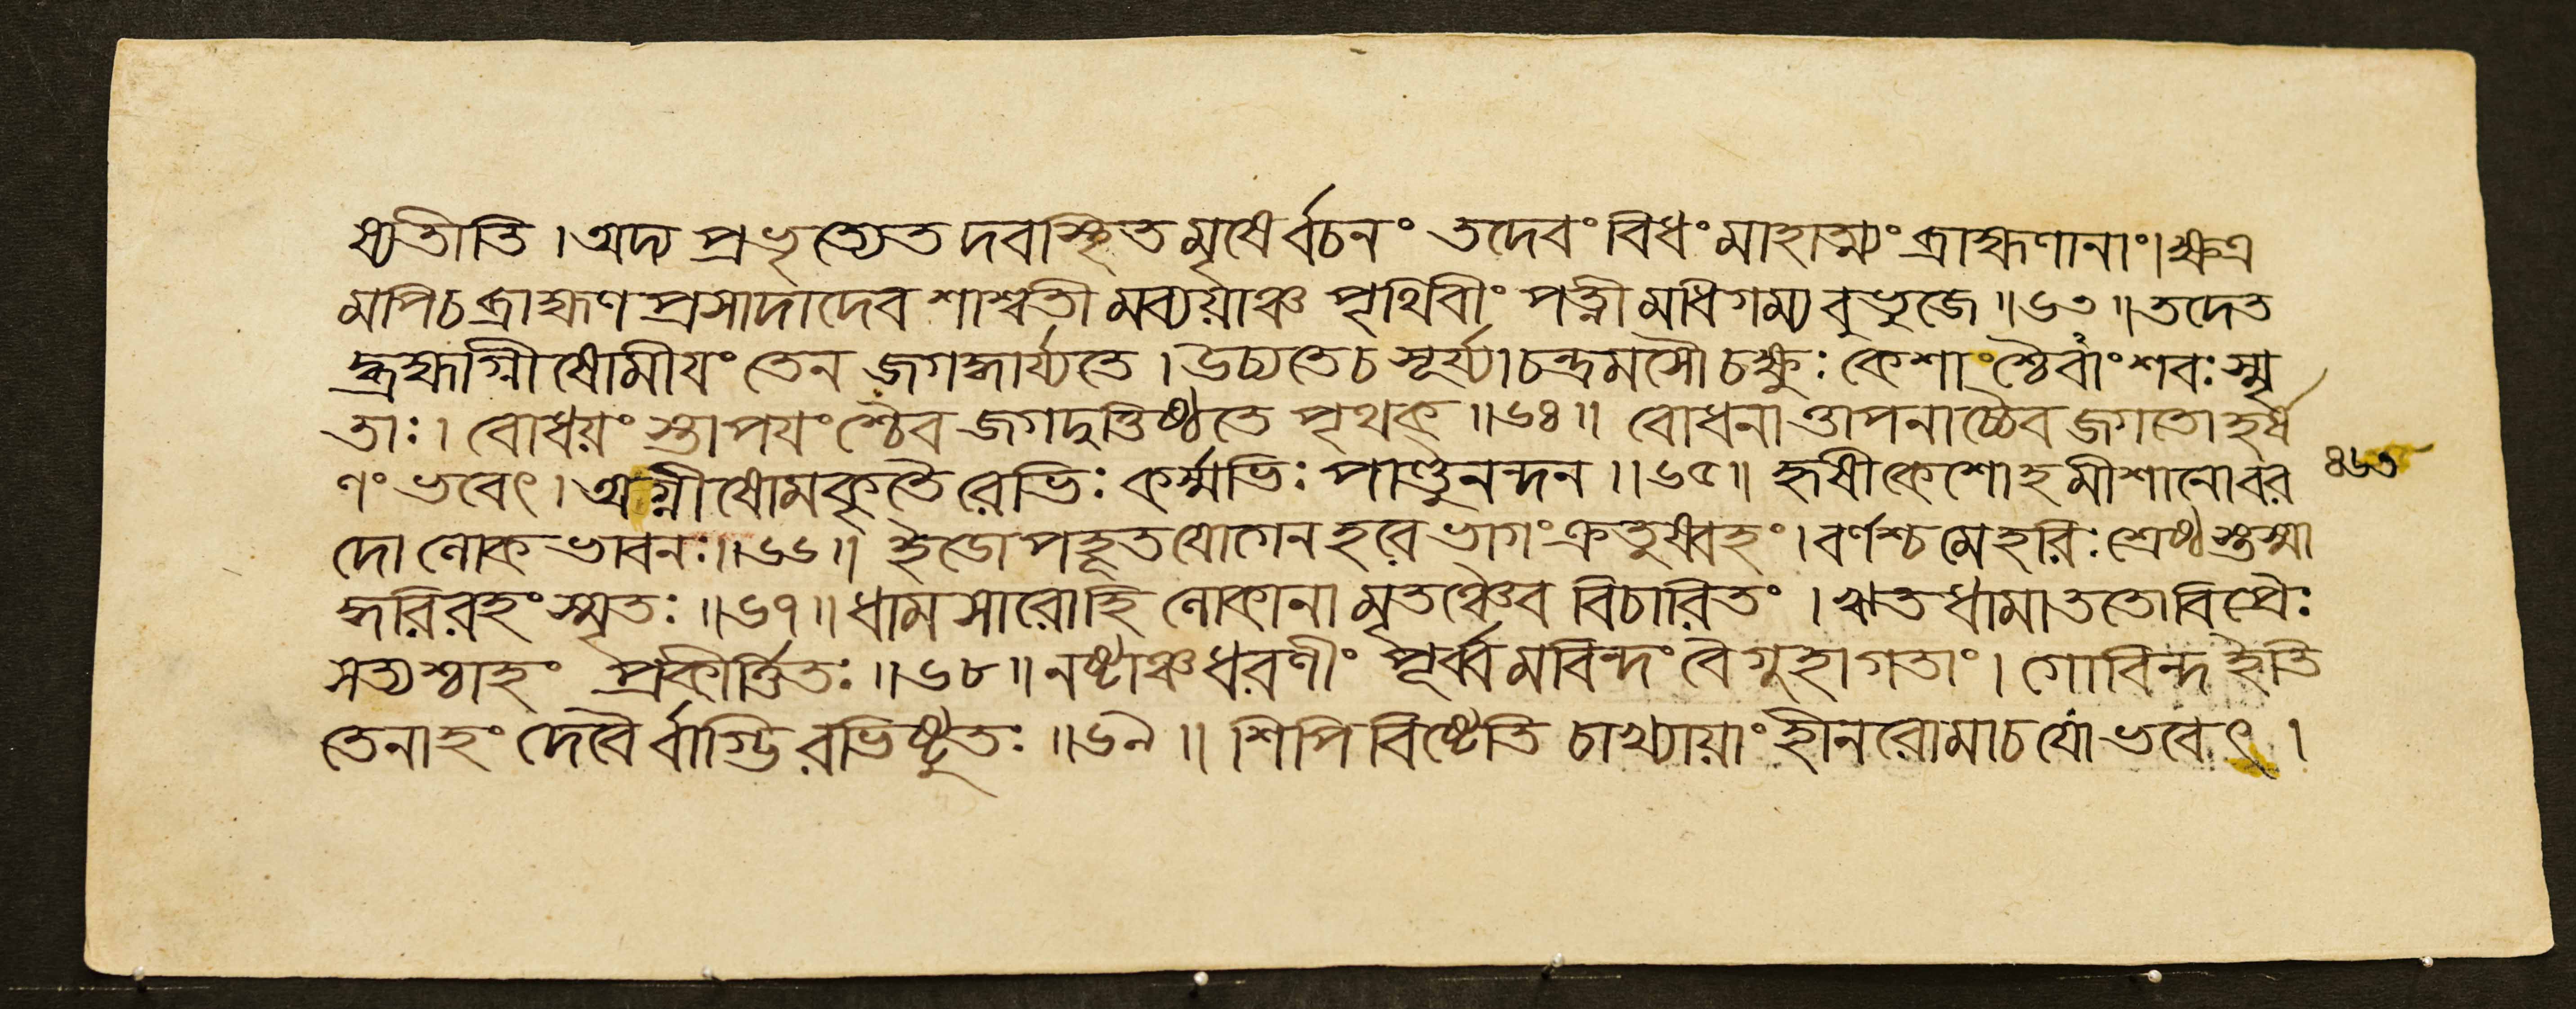 ষ্যতীতি । অদ্য প্রভৃত্যেত দবস্থিত মৃষের্বচনং তদেবং বিধং মাহাত্ম্যং ব্রাহ্মণানাং। ক্ষত্র
মপিচ ব্রাহ্মণ প্রসাদাদেব শাশ্বতী মব্যয়াঞ্চ পৃথিবীং পত্নী মধিগম্য বুভুজে ॥৬৩॥ তদেত
দ্ব্রহ্মাগ্নীষোমীয়ং তেন জগদ্ধার্য্যতে । উচ্যতেচ সূর্য্যাচন্দ্রমসৌ চক্ষুঃ কেশাংশ্চৈবাংশবঃ স্মৃ
তাঃ । বোধয়ং স্তাপয়ংশ্চৈব জগদুত্তিষ্ঠতে পৃথক্ ॥৬৪॥ বোধনাত্তাপনাচ্চৈব জগতো হর্ষ
ণং ভবেৎ । অগ্নীষোমকৃতৈ রেভিঃ কর্ম্মভিঃ পাণ্ডুনন্দন ॥৬৫॥ হৃষীকেশোহমীশানো বর
৪৬৩
দো লোক ভাবনঃ ॥৬৬॥ ইডোপহূত যোগেন হরে ভাগং ক্রতুষ্বহং । বর্ণশ্চ মে হরিঃ শ্রেষ্ঠ স্তস্মা
দ্ধরিরহং স্মৃতঃ ॥৬৭॥ ধাম সারোহি লোকানা মৃতঞ্চৈব বিচারিতং । ঋত ধামা ততো বিপ্রৈঃ
সত্যশ্চাহং প্রকীর্ত্তিতঃ ॥৬৮॥ নষ্টাঞ্চ ধরণীং পূর্ব্ব মবিন্দং বৈ গুহাগতাং । গোবিন্দ ইতি
তেনাহং দেবৈ র্বাগ্ভি রভিষ্টুতঃ ॥৬৯॥ শিপি বিষ্টেতি চাখ্যায়াং হীনরোমাচ যো ভবেৎ ।